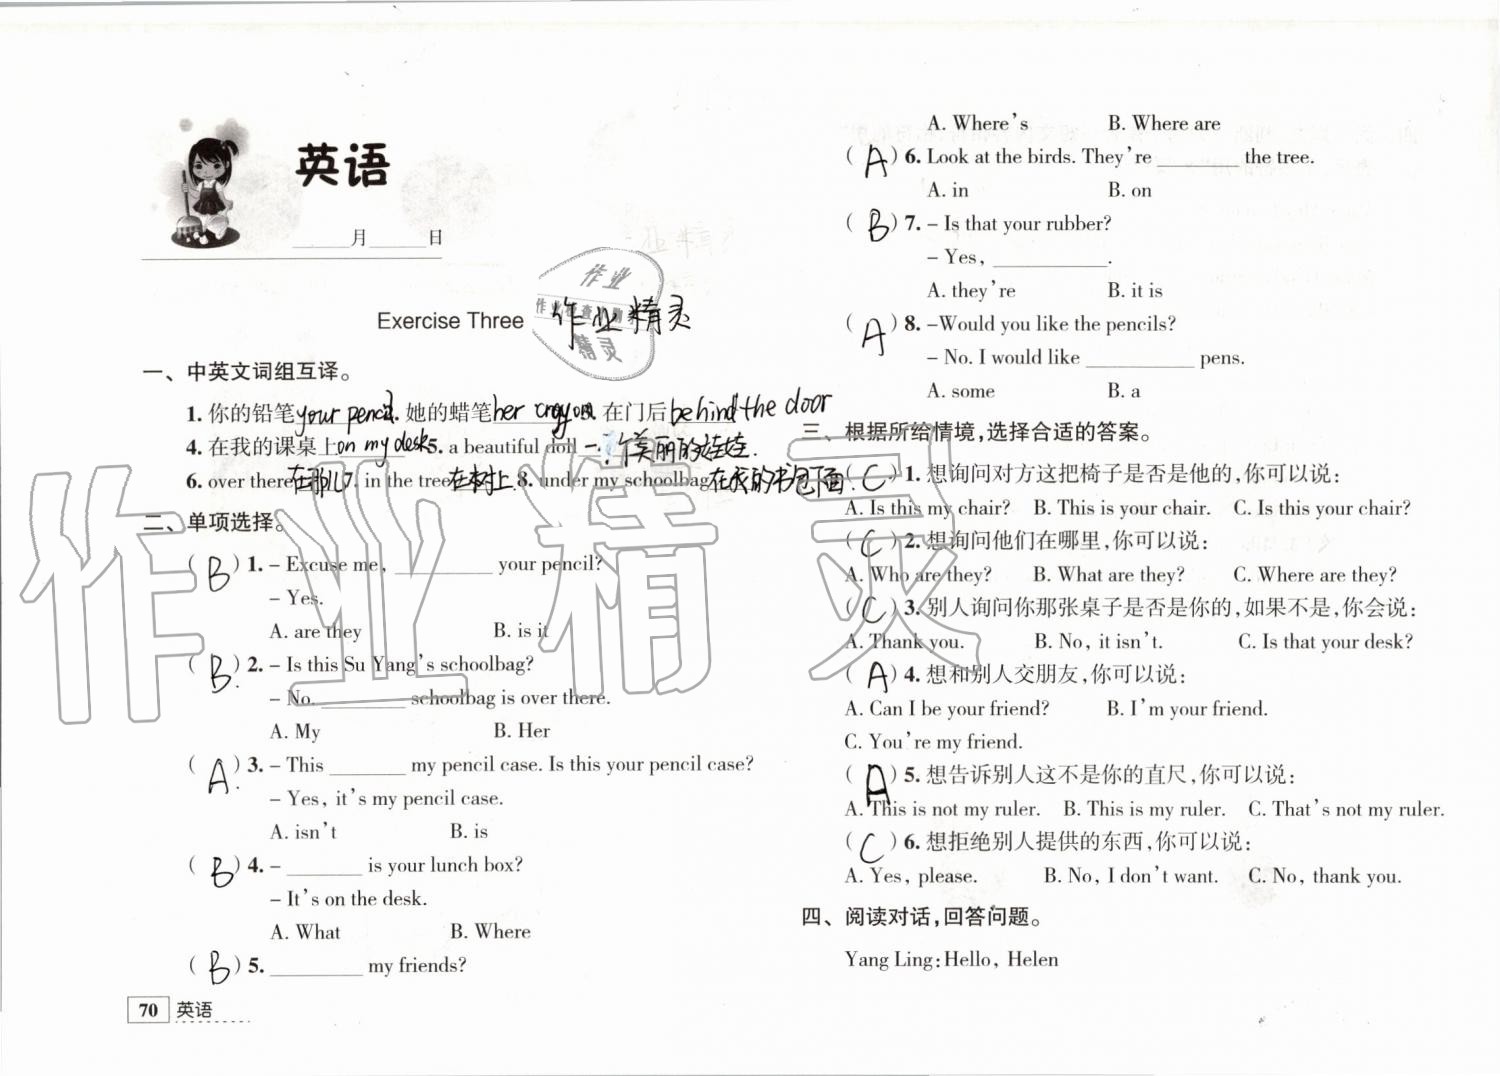 英语
______月______日
Exercise Three 作业精灵
作业
作业检查小助手
精灵
一、中英文词组互译。
1. 你的铅笔your pencil. 她的蜡笔her crayon. 在门后behind the door
4. 在我的课桌上on my desk 5. a beautiful doll 一个美丽的娃娃.
6. over there在那儿7. in the tree在树上. 8. under my schoolbag在我的书包下面.
二、单项选择。
( B )1. – Excuse me, __________ your pencil?
– Yes.
A. are they B. is it
( B. )2. – Is this Su Yang's schoolbag?
– No. ________ schoolbag is over there.
A. My B. Her
( A. )3. – This ________ my pencil case. Is this your pencil case?
– Yes, it's my pencil case.
A. isn't B. is
( B )4. – ________ is your lunch box?
– It's on the desk.
A. What B. Where
( B )5. __________ my friends?
70 英语
A. Where's B. Where are
( A )6. Look at the birds. They're ________ the tree.
A. in B. on
( B )7. – Is that your rubber?
– Yes, ____________.
A. they're B. it is
( A )8. –Would you like the pencils?
– No. I would like ____________ pens.
A. some B. a
三、根据所给情境,选择合适的答案。
( C )1. 想询问对方这把椅子是否是他的,你可以说:
A. Is this my chair? B. This is your chair. C. Is this your chair?
( C )2. 想询问他们在哪里,你可以说:
A. Who are they? B. What are they? C. Where are they?
( C )3. 别人询问你那张桌子是否是你的,如果不是,你会说:
A. Thank you. B. No, it isn't. C. Is that your desk?
( A )4. 想和别人交朋友,你可以说:
A. Can I be your friend? B. I'm your friend.
C. You're my friend.
( A )5. 想告诉别人这不是你的直尺,你可以说:
A. This is not my ruler. B. This is my ruler. C. That's not my ruler.
( C )6. 想拒绝别人提供的东西,你可以说:
A. Yes, please. B. No, I don't want. C. No, thank you.
四、阅读对话,回答问题。
Yang Ling:Hello, Helen
作业精灵